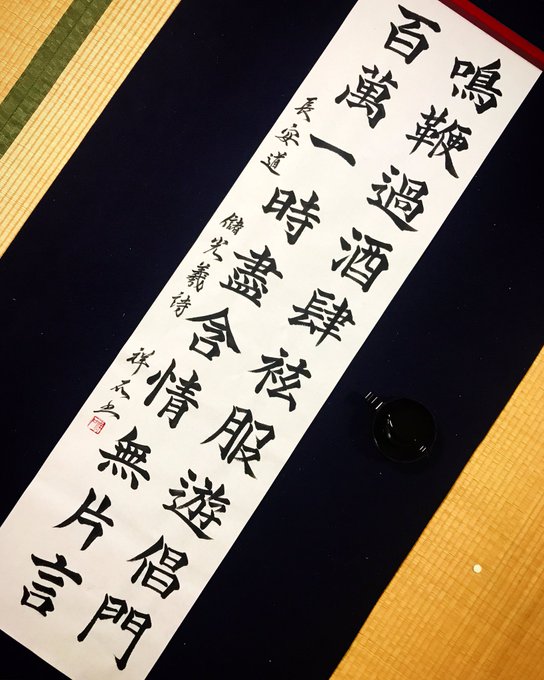 鳴鞭過酒肆袨服遊倡門
百萬一時盡含情無片言
長安道 儲光羲詩 祥石書